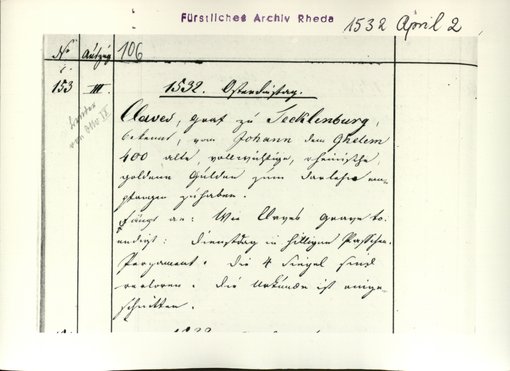 Fürstliches Archiv Rheda
1532 April 2
No Auszug 106
153 III 1532. Osterdienstag.
Bruder
von Otto IV
Claves, Graf zu Tecklenburg,
bekennt, von Johann dem Ghelem
400 alte, vollwichtige, rheinische,
goldene Gulden zum Darlehn em-
pfangen zu haben.
Fängt an: Wir Claves Grave to
endigt: Dienstag in hilligen Paschen.
Pergament. Die 4 Siegel sind
verloren. Die Urkunde ist einge-
schnitten.